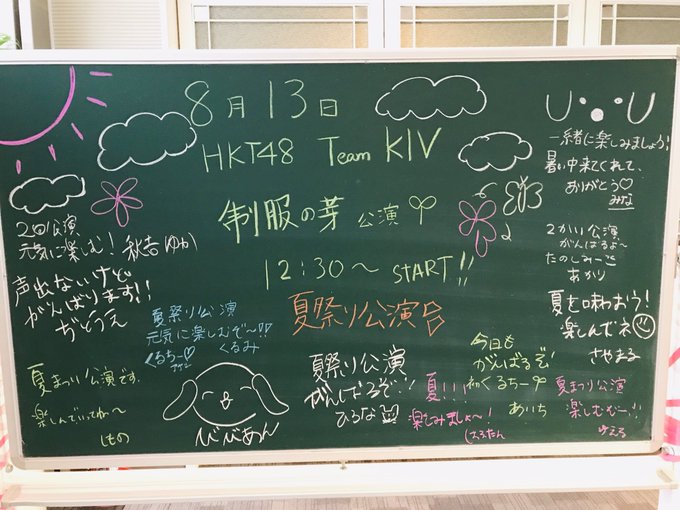 8月13日
HKT48 Team KIV
制服の芽 公演
12:30～ START!!
夏祭り公演
2回公演
元気に楽しむ! 秋吉ゆか
声出ないけど
がんばります!!
ぢとうえ
夏祭り公演
元気に楽しむぞ〜!!
くるちー♡
くるみ
夏まつり公演です。
楽しんでいってね〜
しもの
びびあん
夏祭り公演
がんばるぞ!!
ひろな
今日も
がんばるぞ!
くるちー
あいち
夏!!!
楽しみましょ〜!
はるたん
一緒に楽しみましょう!
暑い中来てくれて、
ありがとう♡
みな
2かい公演
がんばるよ〜
たのしみー
あかり
夏を味わおう!
楽しんでネ
さやまる
夏まつり公演
楽しむむー!!